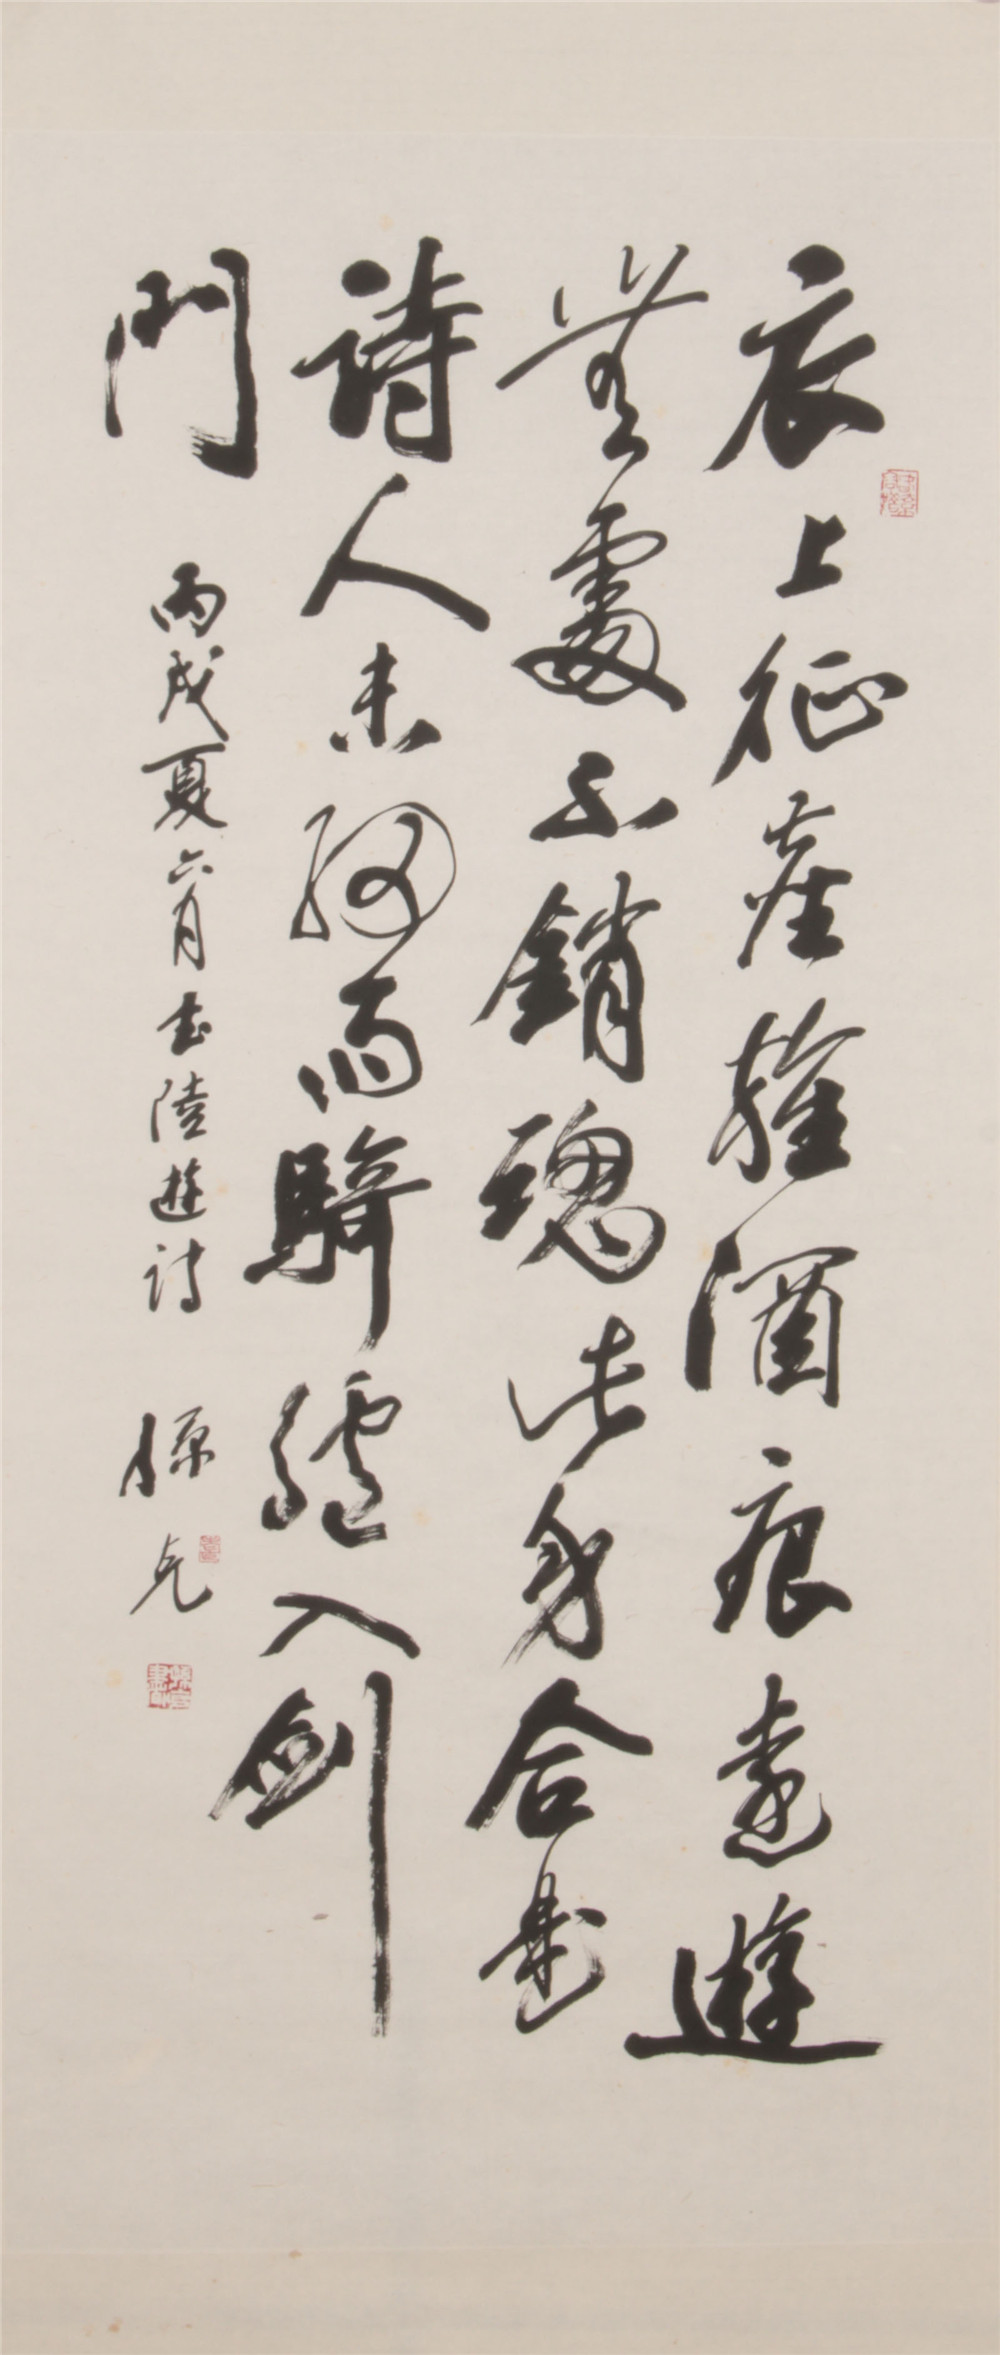 衣上征塵雜酒痕遠遊
無處不銷魂此身合是
詩人未細雨騎驢入劍
門
丙戌夏六月書陸遊詩